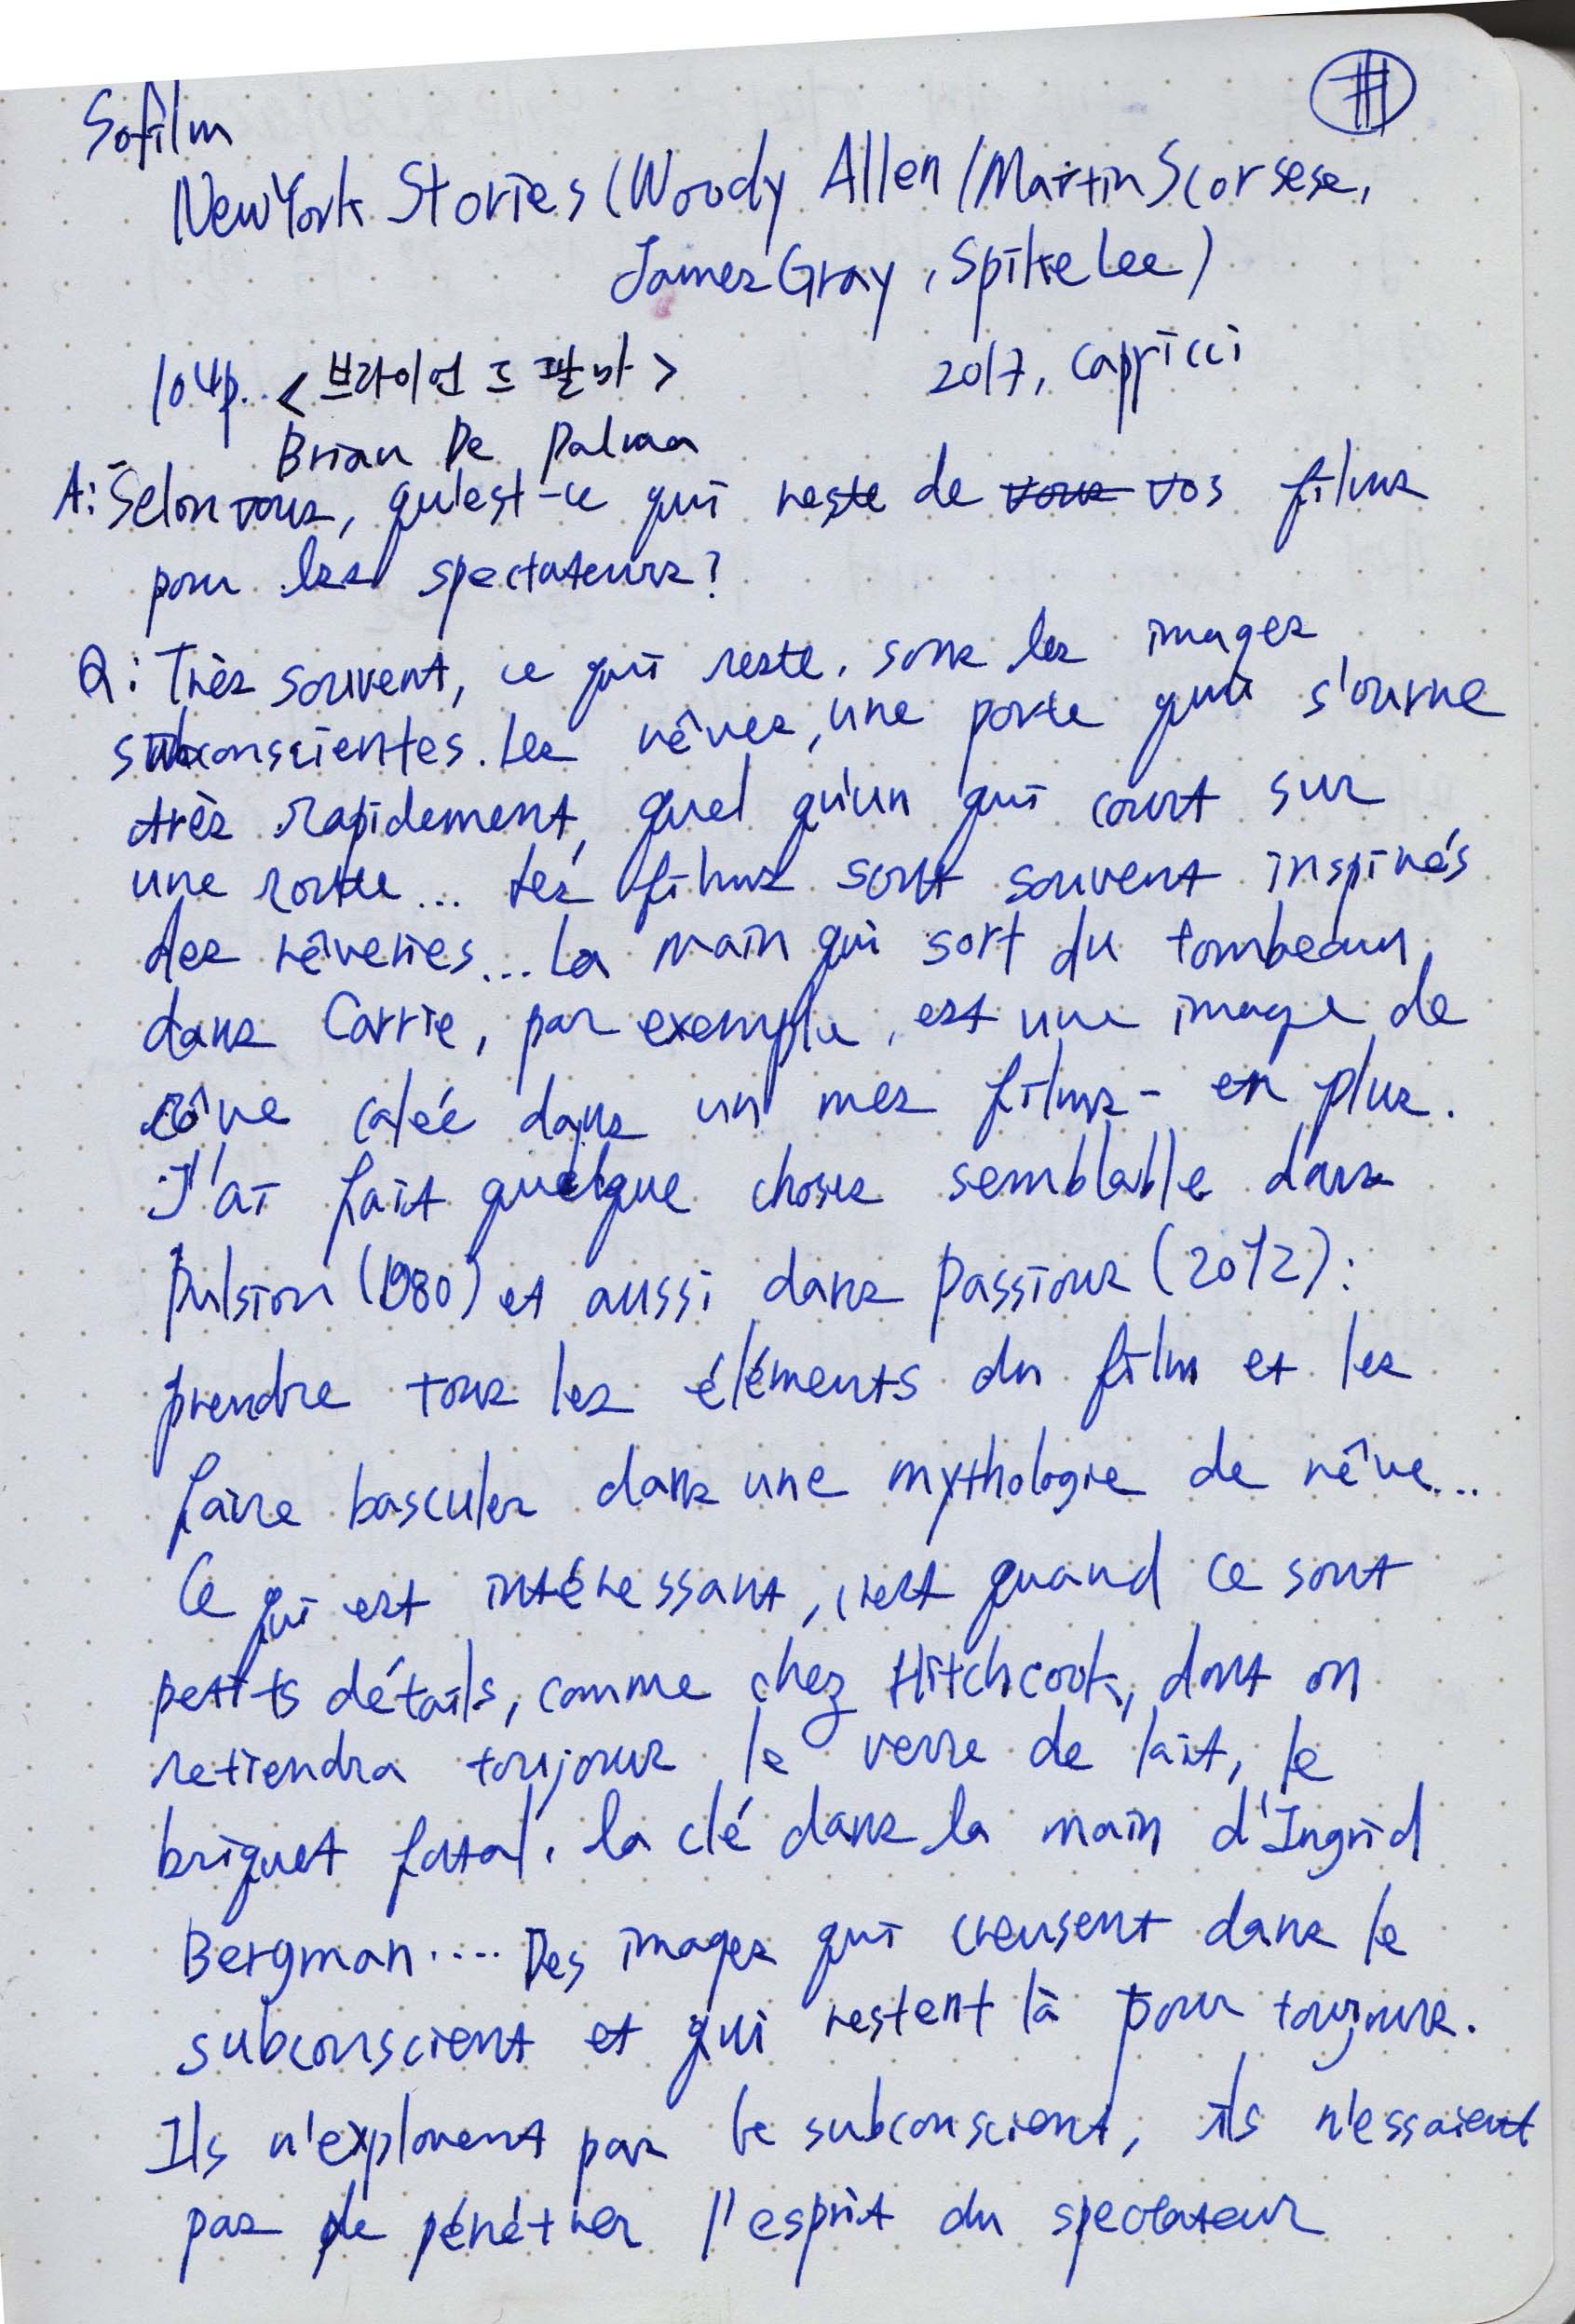 Sofilm
New York Stories (Woody Allen / Martin Scorsese,
James Gray, Spike Lee)
104p. <브라이언 드 팔마> 2017, Capricci
Brian De Palma
A: Selon vous, qu'est-ce qui reste de vous vos films
pour les spectateurs?
Q: Très souvent, ce qui reste, sons les images
subconscientes. Les rêves, une porte qui s'ouvre
très rapidement, quel qu'un qui court sur
une route... Les films sont souvent inspirés
des rêveries... La main qui sort du tombeau,
dans Carrie, par exemple, est une image de
rêve calée dans un mes films - en plus.
J'ai fait quelque choses semblable dans
Pulsion (1980) et aussi dans Passions (2012):
prendre tous les éléments du film et les
faire basculer dans une mythologie de rêve...
Ce qui est intéressant, c'est quand ce sont
petits détails, comme chez Hitchcock, dont on
retiendra toujours le verre de lait, le
briquet fatal, la clé dans la main d'Ingrid
Bergman.... Des images qui creusent dans le
subconscient et qui restent là pour toujours.
Ils n'explorent pas le subconscient, ils n'essaient
pas de pénétrer l'esprit du spectateur